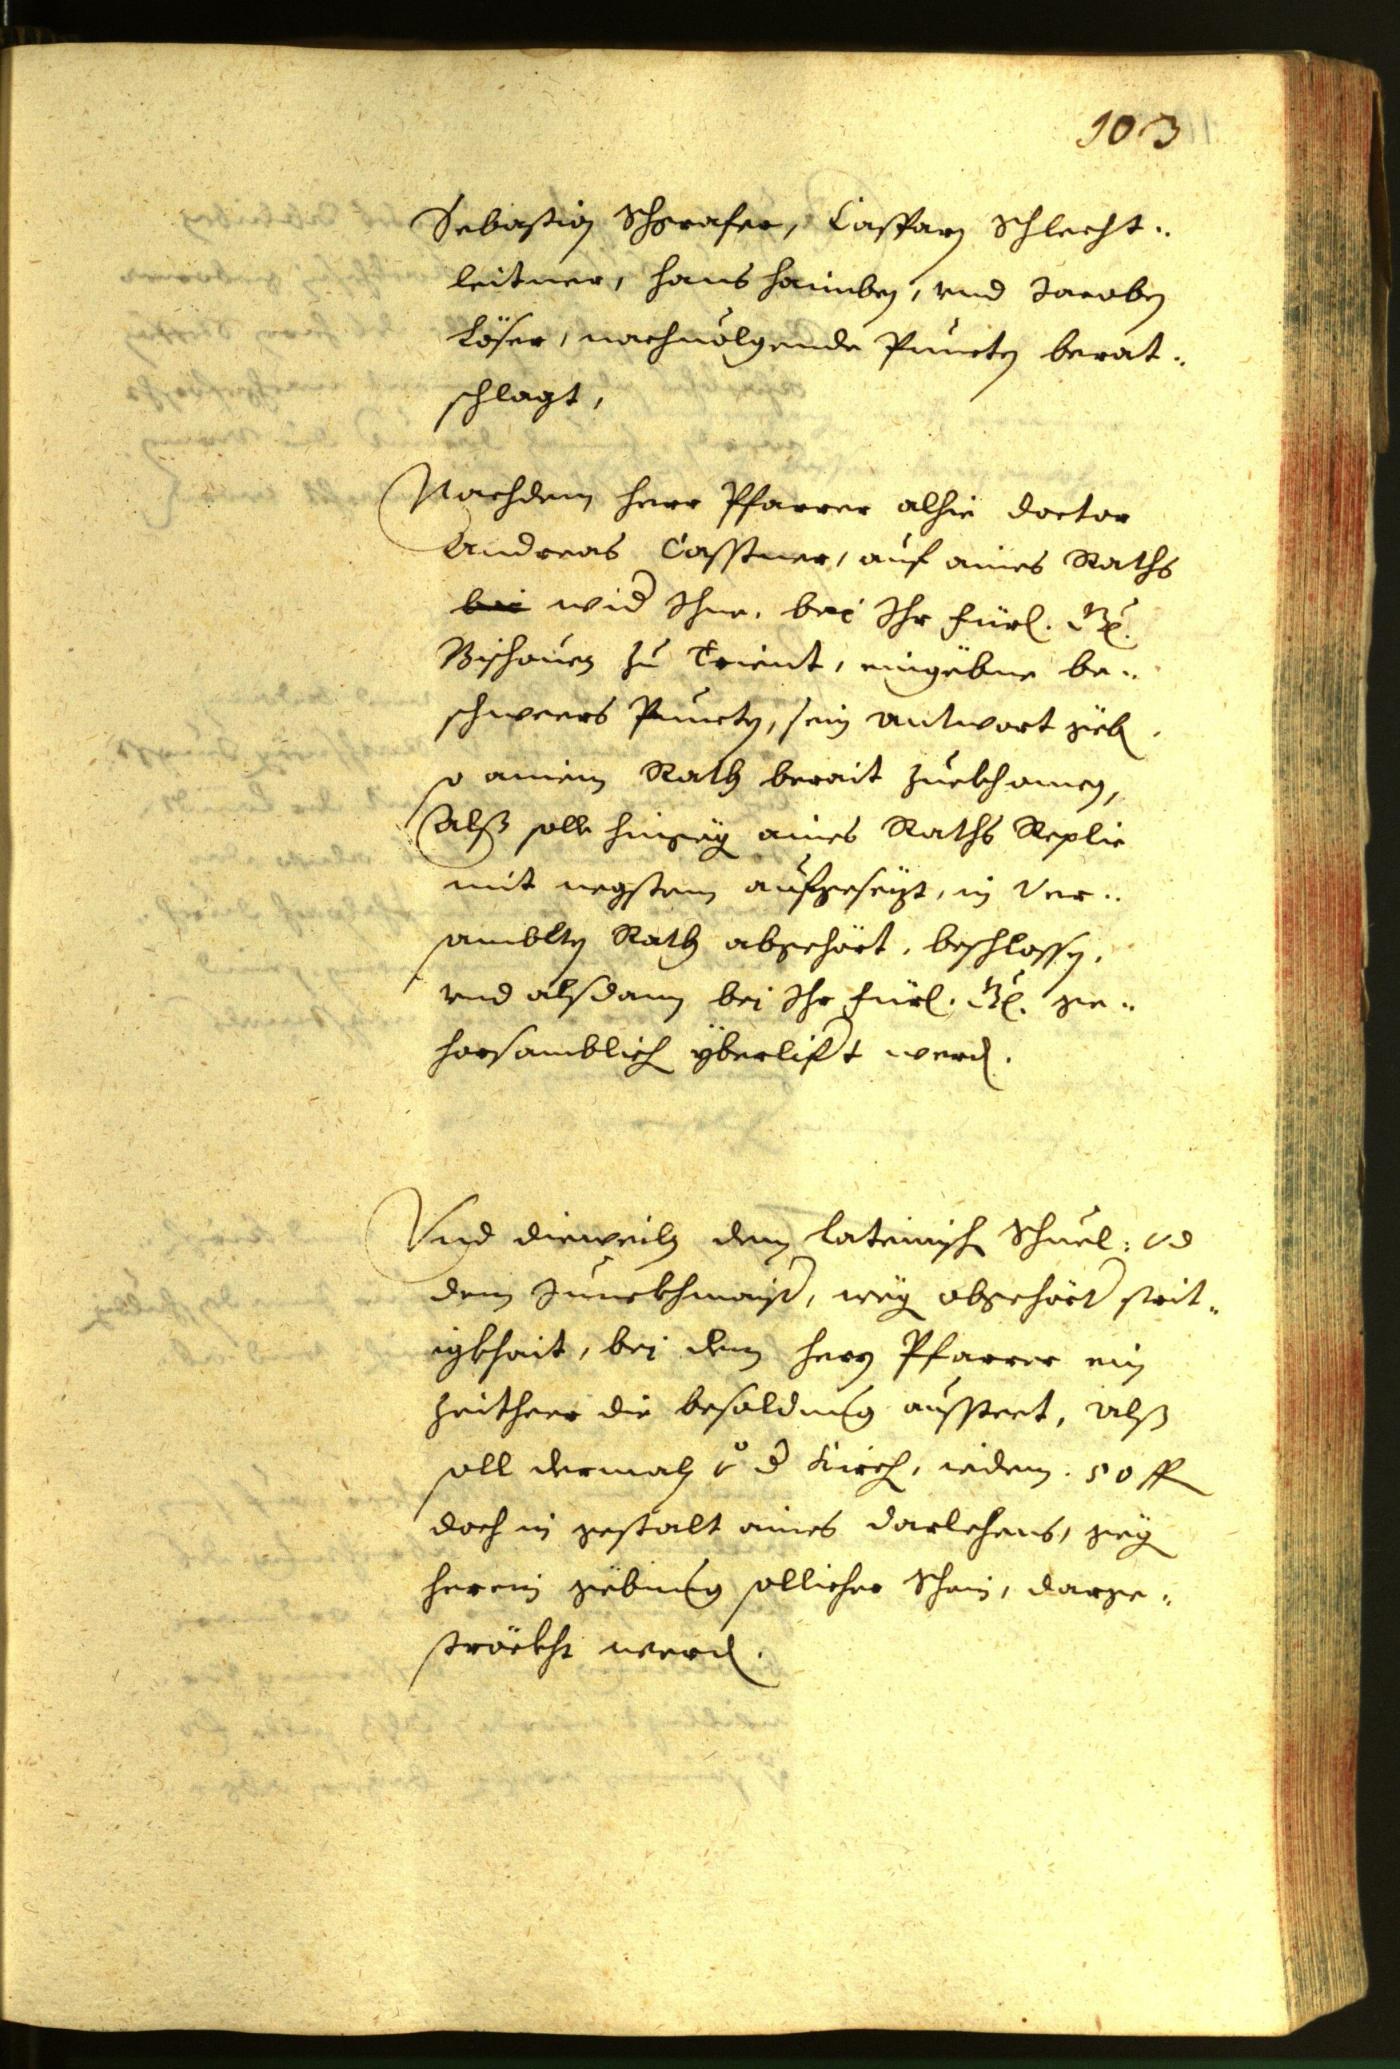 103
Sebastian Schgrafer, Casparn Schlecht„
leitner, Hans Haimben, vnd Jacoben
Löser, nachuolgende Puncten berat„
schlagt,
Nachdem Herr Pfarrer alhie doctor
Andreas Casstner, auf aines Raths
bei wid Ihne. bei Ihr fürl. Gn.
Bischouen zu Trient, eingebne be„
schwers Puncten, sein antwort geben.
so ainem Rath berait zuekhomen,
Alß solle hingegen aines Raths Replic
mit negstem aufgesezt, in Ver„
sambleten Rath abgehört, beschlossen,
vnd alsdann bei Ihr fürl. Gn. ge„
horsamblich yberlifert werden.
Vnd dieweiln dem lateinischen Schuel: vnd
dem Junckhmaister, wegen abgehörter strit„
igkhait, bei dem Herrn Pfarrer ein
zeitheer die besoldung aussteet, Alß
soll dermaln von der Kirchen, iedem. 50 fl
doch in gestalt aines darlehens, gegen
herein gebung sollicher Schein, darge„
sträckht werden.